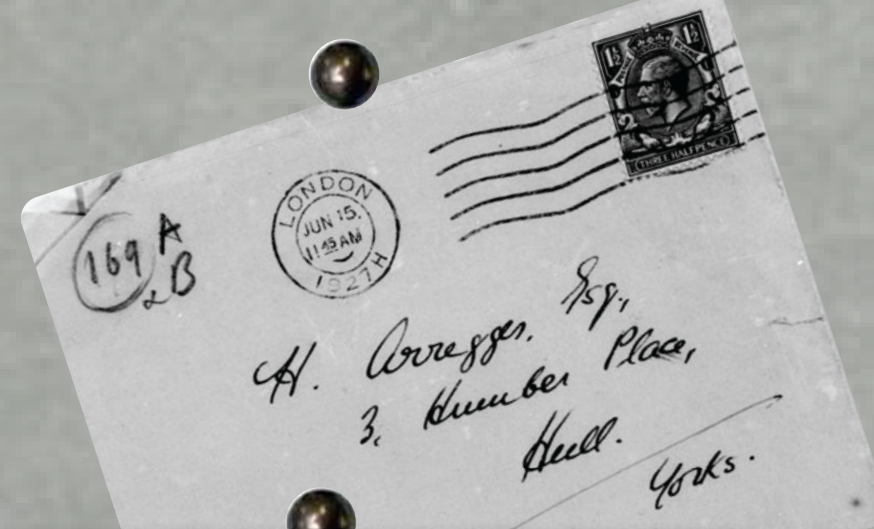 1½ 1½
THREE HALFPENCE
LONDON
JUN 15.
11 45 AM
1927 H
169 A
& B
H. Arregger. Esq.,
3, Humber Place,
Hull.
Yorks.